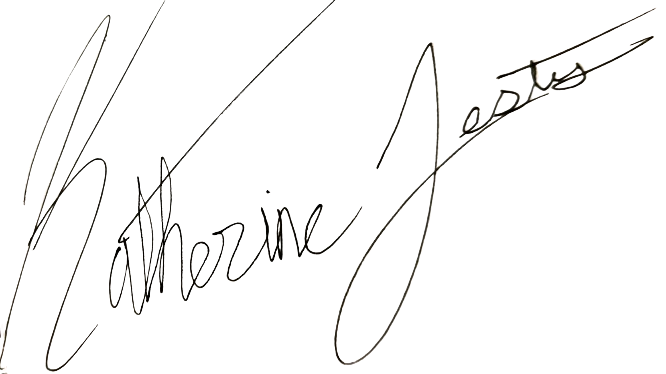 Katherine Jests